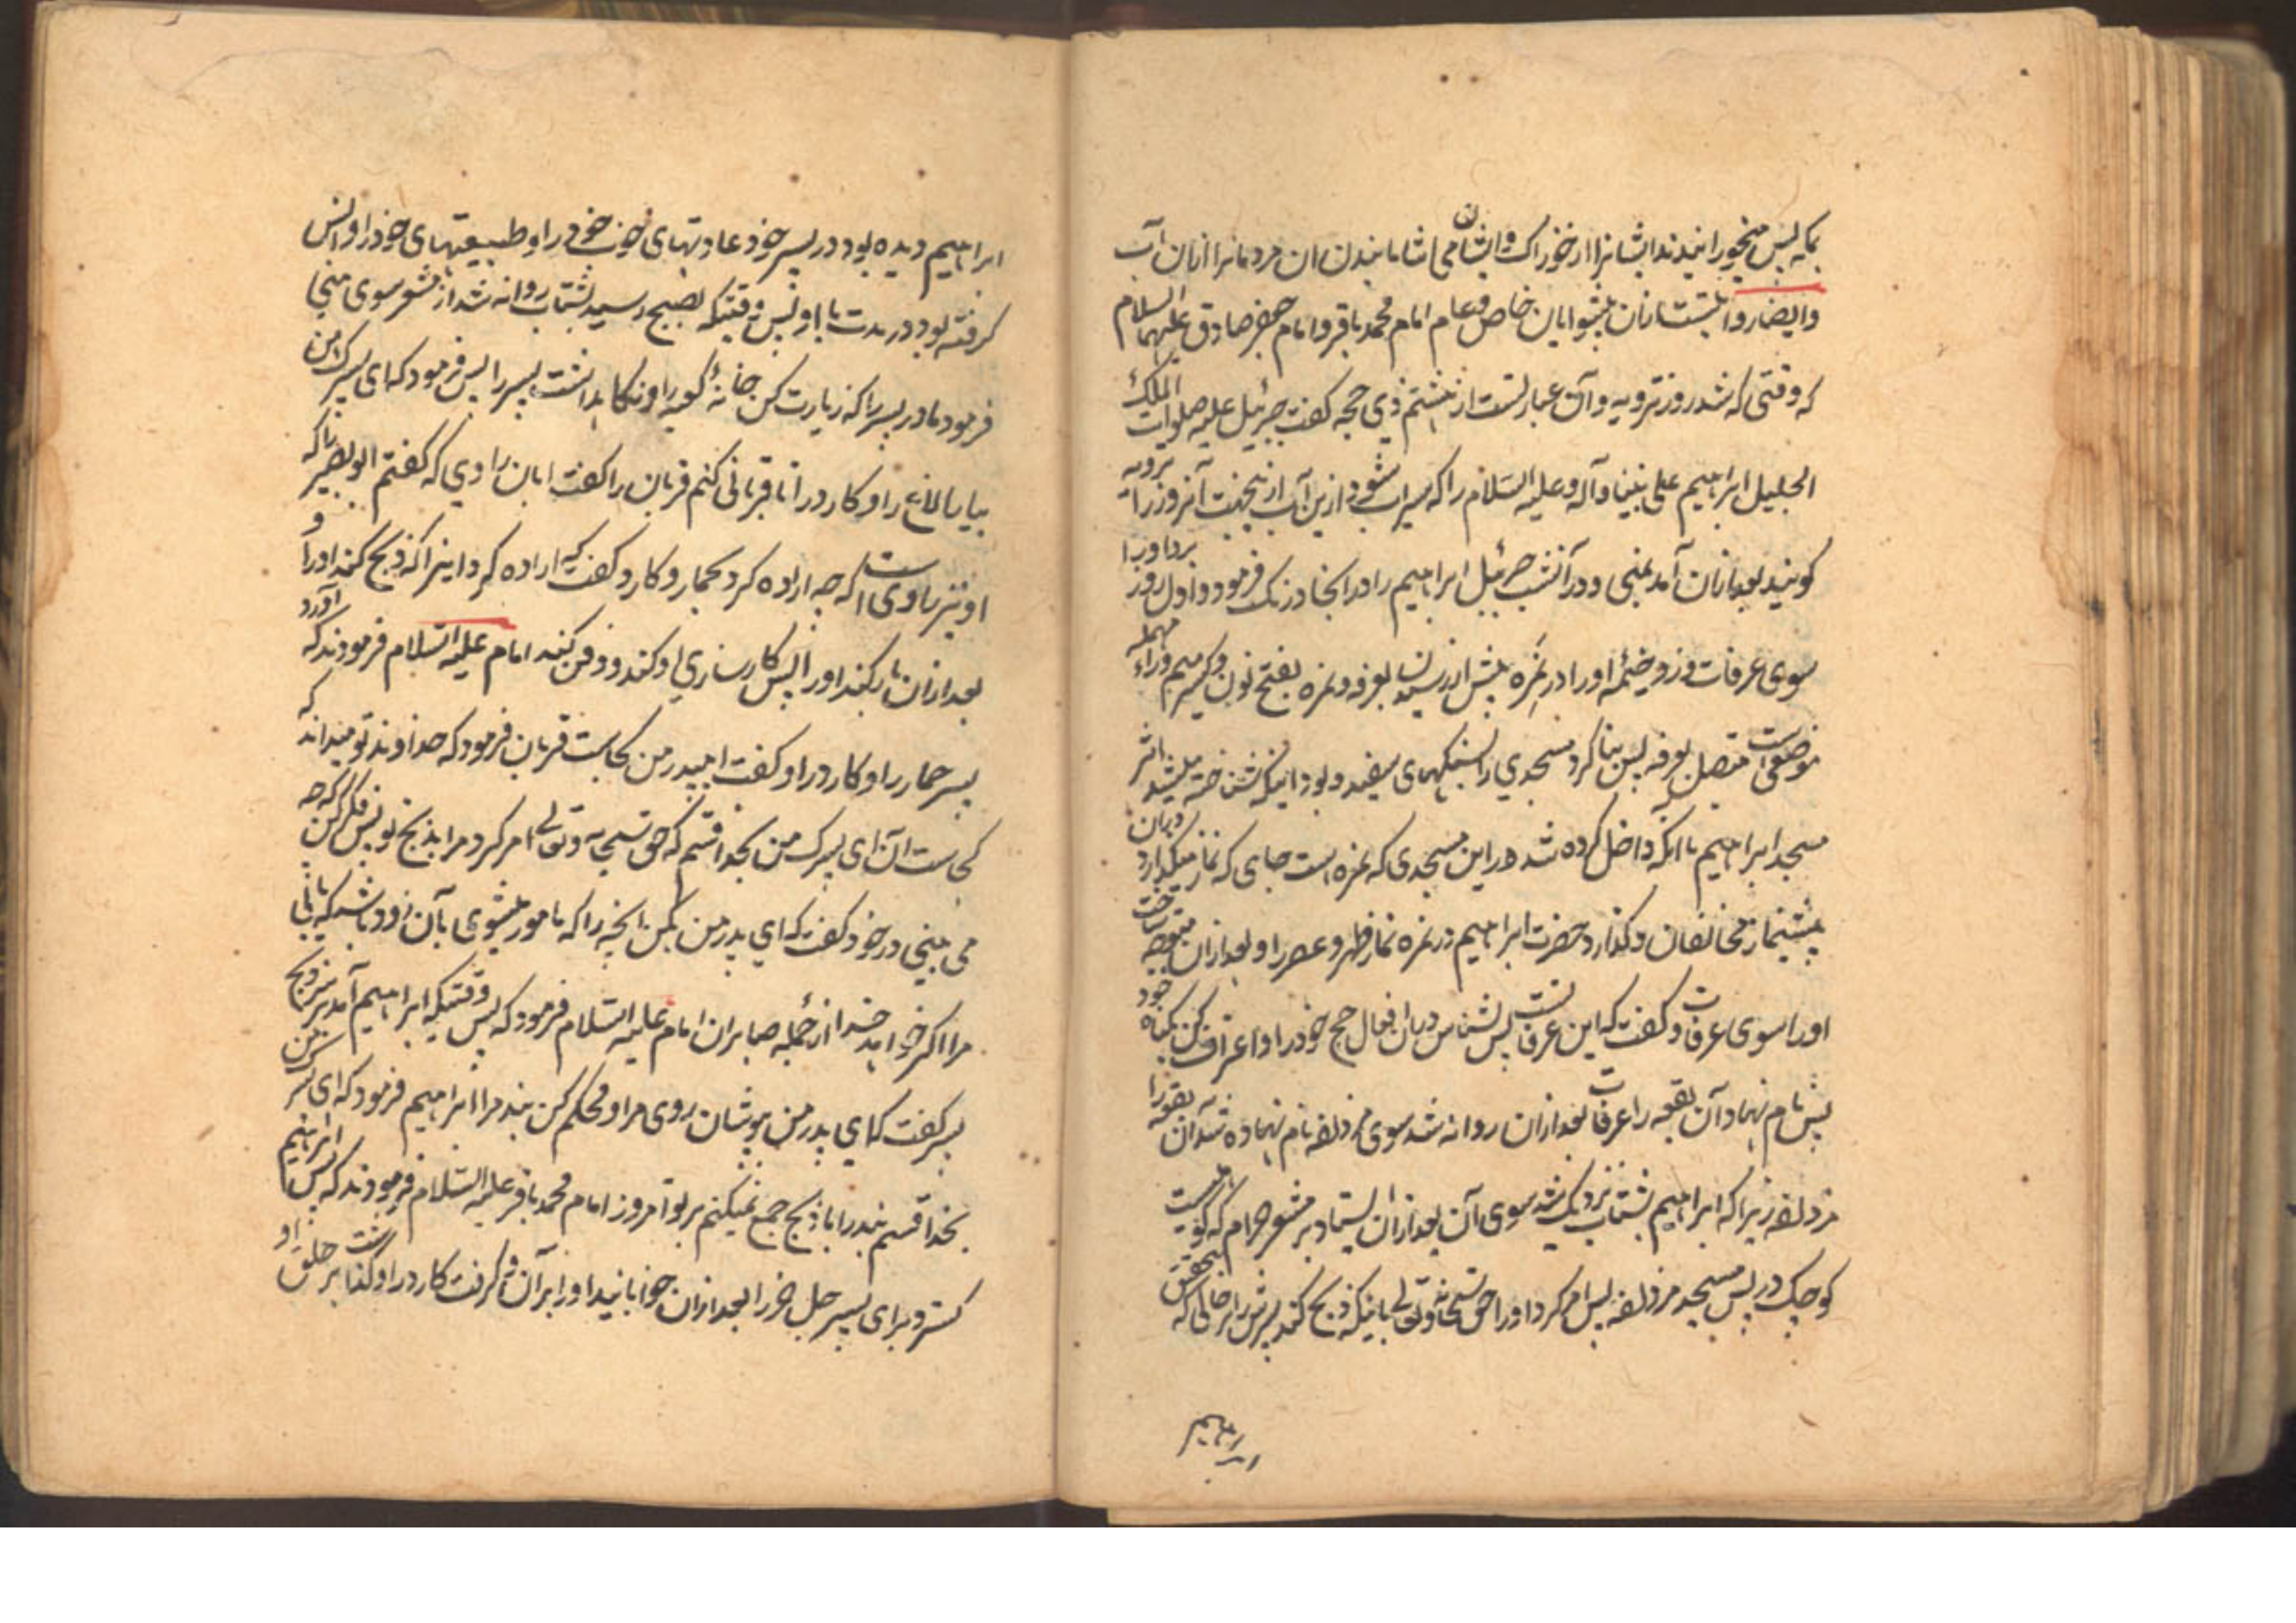 بمکه پس میخورانیدند ایشانرا از خوراک و ایشان می‌اشامانیدن ان مردمانرا ازان آب
وایضا روایتست ازان پیشوایان خاص و عام امام محمد باقر و امام جعفر صادق علیهما السلام
که وقتی که شد روز ترویه و آن عبارتست از هشتم ذی حجه کفت جبرئیل علیه صلوات الملک
الجلیل ابراهیم علی نبینا و آله و علیه السلام را که سیراب شود ازین آب ازینجهت آنروز را ترویه
کویند بعد ازان آمد بمنی و در آنشب جبرئیل ابراهیم را در انجا درنک فرمود و اول روز برد او را
سوی عرفات و زد خیمه او را در نمره پیش از رسیدن بعرفه و نمره بفتح نون و کسر میم و راء مهمله
موضعی است متصل بعرفه پس بنا کرد مسجدی را بسنکهای سفید و بود اینکه شناخته میشد اثر
مسجد ابراهیم تا انکه داخل کرده شد در این مسجدی که نمره است جای که نماز میکذارد دران
پیشنماز مخالفان و کذارد حضرت ابراهیم در نمره نماز ظهر و عصر را و بعد ازان متوجه ساخت
او را سوی عرفات و کفت که این عرفات است پس بشناس دران افعال حج خود را و اعتراف کن بکناه خود
پس نام نهاد آن بقعه را عرفات بعد ازان روانه شد سوی مزدلفه نام نهاده شد آن بقعه را
مزدلفه زیرا که ابراهیم بشتاب نزدیک شد سوی آن بعد ازان ایستاد بر مشعر حرام که کوهیست
کوچک در پس مسجد مزدلفه پس امر کرد او را حق سبحانه و تعالی باینکه ذبح کند پسرش را در حالی که بتحقیق
ابراهیم
ابراهیم دیده بود در پسر خود عادتهای خوب خود را و طبیعتهای خود را و انس
کرفته بود در مدت با او پس وقتیکه بصبح رسید بشتاب روانه شد از مشعر سوی منی
فرمود مادر پسر را که زیارت کن خانه کعبه را و نکاهداشت پسر را پس فرمود که ای پسرک من
بیا بالاغ را و کارد را تا قربانی کنم قربان را کفت ابان راوی که کفتم ابو بصیر را که
او نیز راوی است که چه اراده کرد بحمار و کارد کفت که اراده کرد اینرا که ذبح کند او را و
بعد ازان بار کند او را پس کارسازی او کند و دفن کند امام علیه السلام فرمودند که آورد
پسر حمار را و کارد را و کفت ای پدر من کجاست قربان فرمود که خداوند تو میداند که
کجاست آن ای پسرک من بخدا قسم که حق سبحانه و تعالی امر کرد مرا بذبح تو پس فکر کن که چه
می بینی در خود کفت که ای پدر من بکن انچه را که مامور میشوی بآن زود باشد که یابی
مرا اکر خواهد خدا از جمله صابران امام علیه السلام فرمود که پس وقتیکه ابراهیم آمد بر سر ذبح
پسر کفت که ای پدر من بپوشان روی مرا و محکم کن بند مرا ابراهیم فرمود که ای پسرک من
بخدا قسم بند را با ذبح جمع نمیکنم بر تو امروز امام محمد باقر علیه السلام فرمودند که پس ابراهیم
کسترد برای پسر جل خر را بعد ازان خوابانید او را بر آن و کرفت کارد را و کذاشت بر حلق او